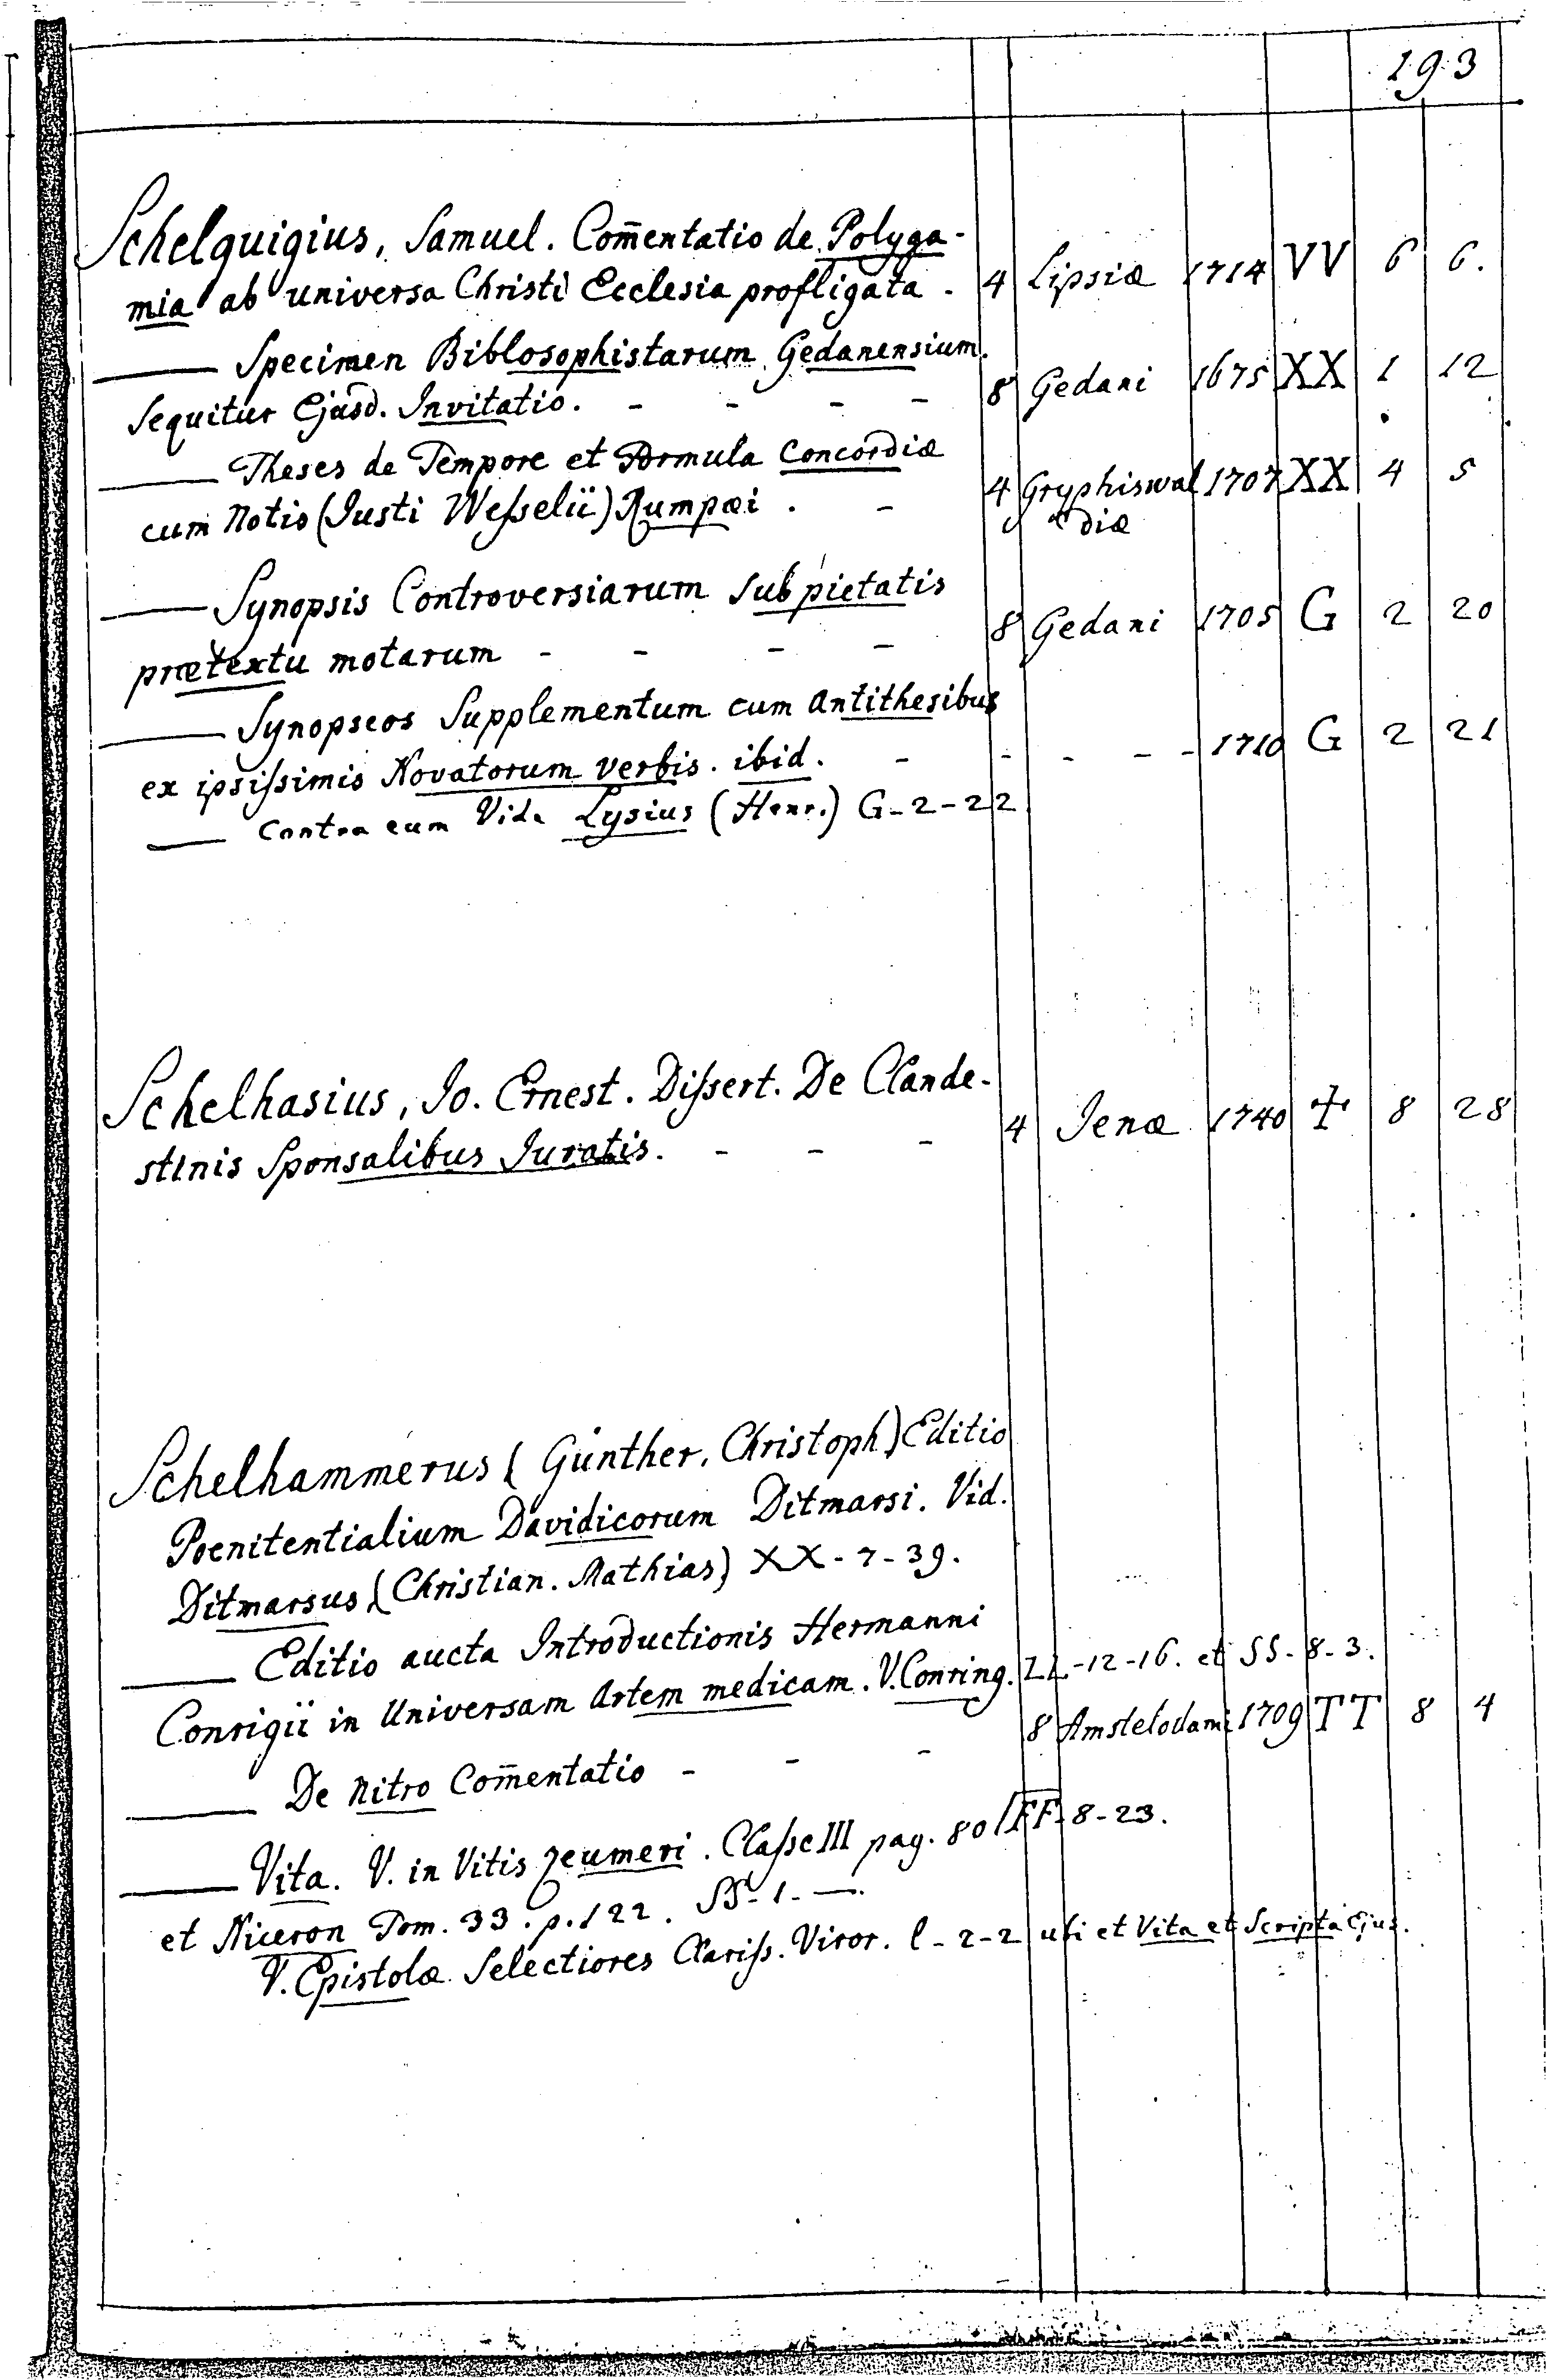 193
Schelguigius, Samuel. Com̄entatio de Polyga-
mia ab universa Christi Ecclesia profligata. 4 Lipsiæ 1714 VV 6 6.
—— Specimen Biblosophistarum Gedanensium.
Sequitur Ejusd. Invitatio. - - - - 8 Gedani 1675 XX 1 12
—— Theses de Tempore et Formula Concordiæ
cum Notis (Justi Wesselii) Rumpæi. - 4 Gryphiswal 1707 XX 4 5
diæ
—— Synopsis Controversiarum sub pietatis
prætextu motarum - - - - 8 Gedani 1705 G 2 20
—— Synopseos Supplementum cum Antithesibus
ex ipsissimis Novatorum verbis. ibid. - - - - - 1710 G 2 21
—— Contra eum Vide Lysius (Henr.) G-2-22
Schelhasius, Jo. Ernest. Dissert. De Clande-
stinis Sponsalibus Juratis. - - - 4 Jenæ 1740 ☩ 8 28
Schelhammerus (Günther. Christoph) Editio
Poenitentialium Davidicorum Ditmarsi. Vid.
Ditmarsus (Christian. Mathias) XX-7-39.
—— Editio aucta Introductionis Hermanni
Conrigii in Universam Artem medicam. V. Conring. ZZ-12-16. et SS-8-3.
—— De Nitro Com̄entatio - - - 8 Amstelodami 1709 TT 8 4
—— Vita. V. in Vitis Zeumeri. Classe III pag. 80 FF-8-23.
et Niceron Tom. 33. p. 122. SS-1-—.
V. Epistolæ Selectiores Clariss. Viror. l-2-2 ubi et Vita et Scripta Ejus.